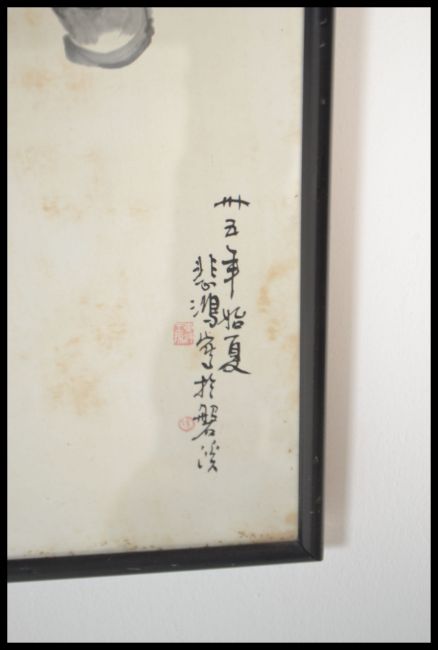 卅五年始夏
悲鴻寫於磐溪